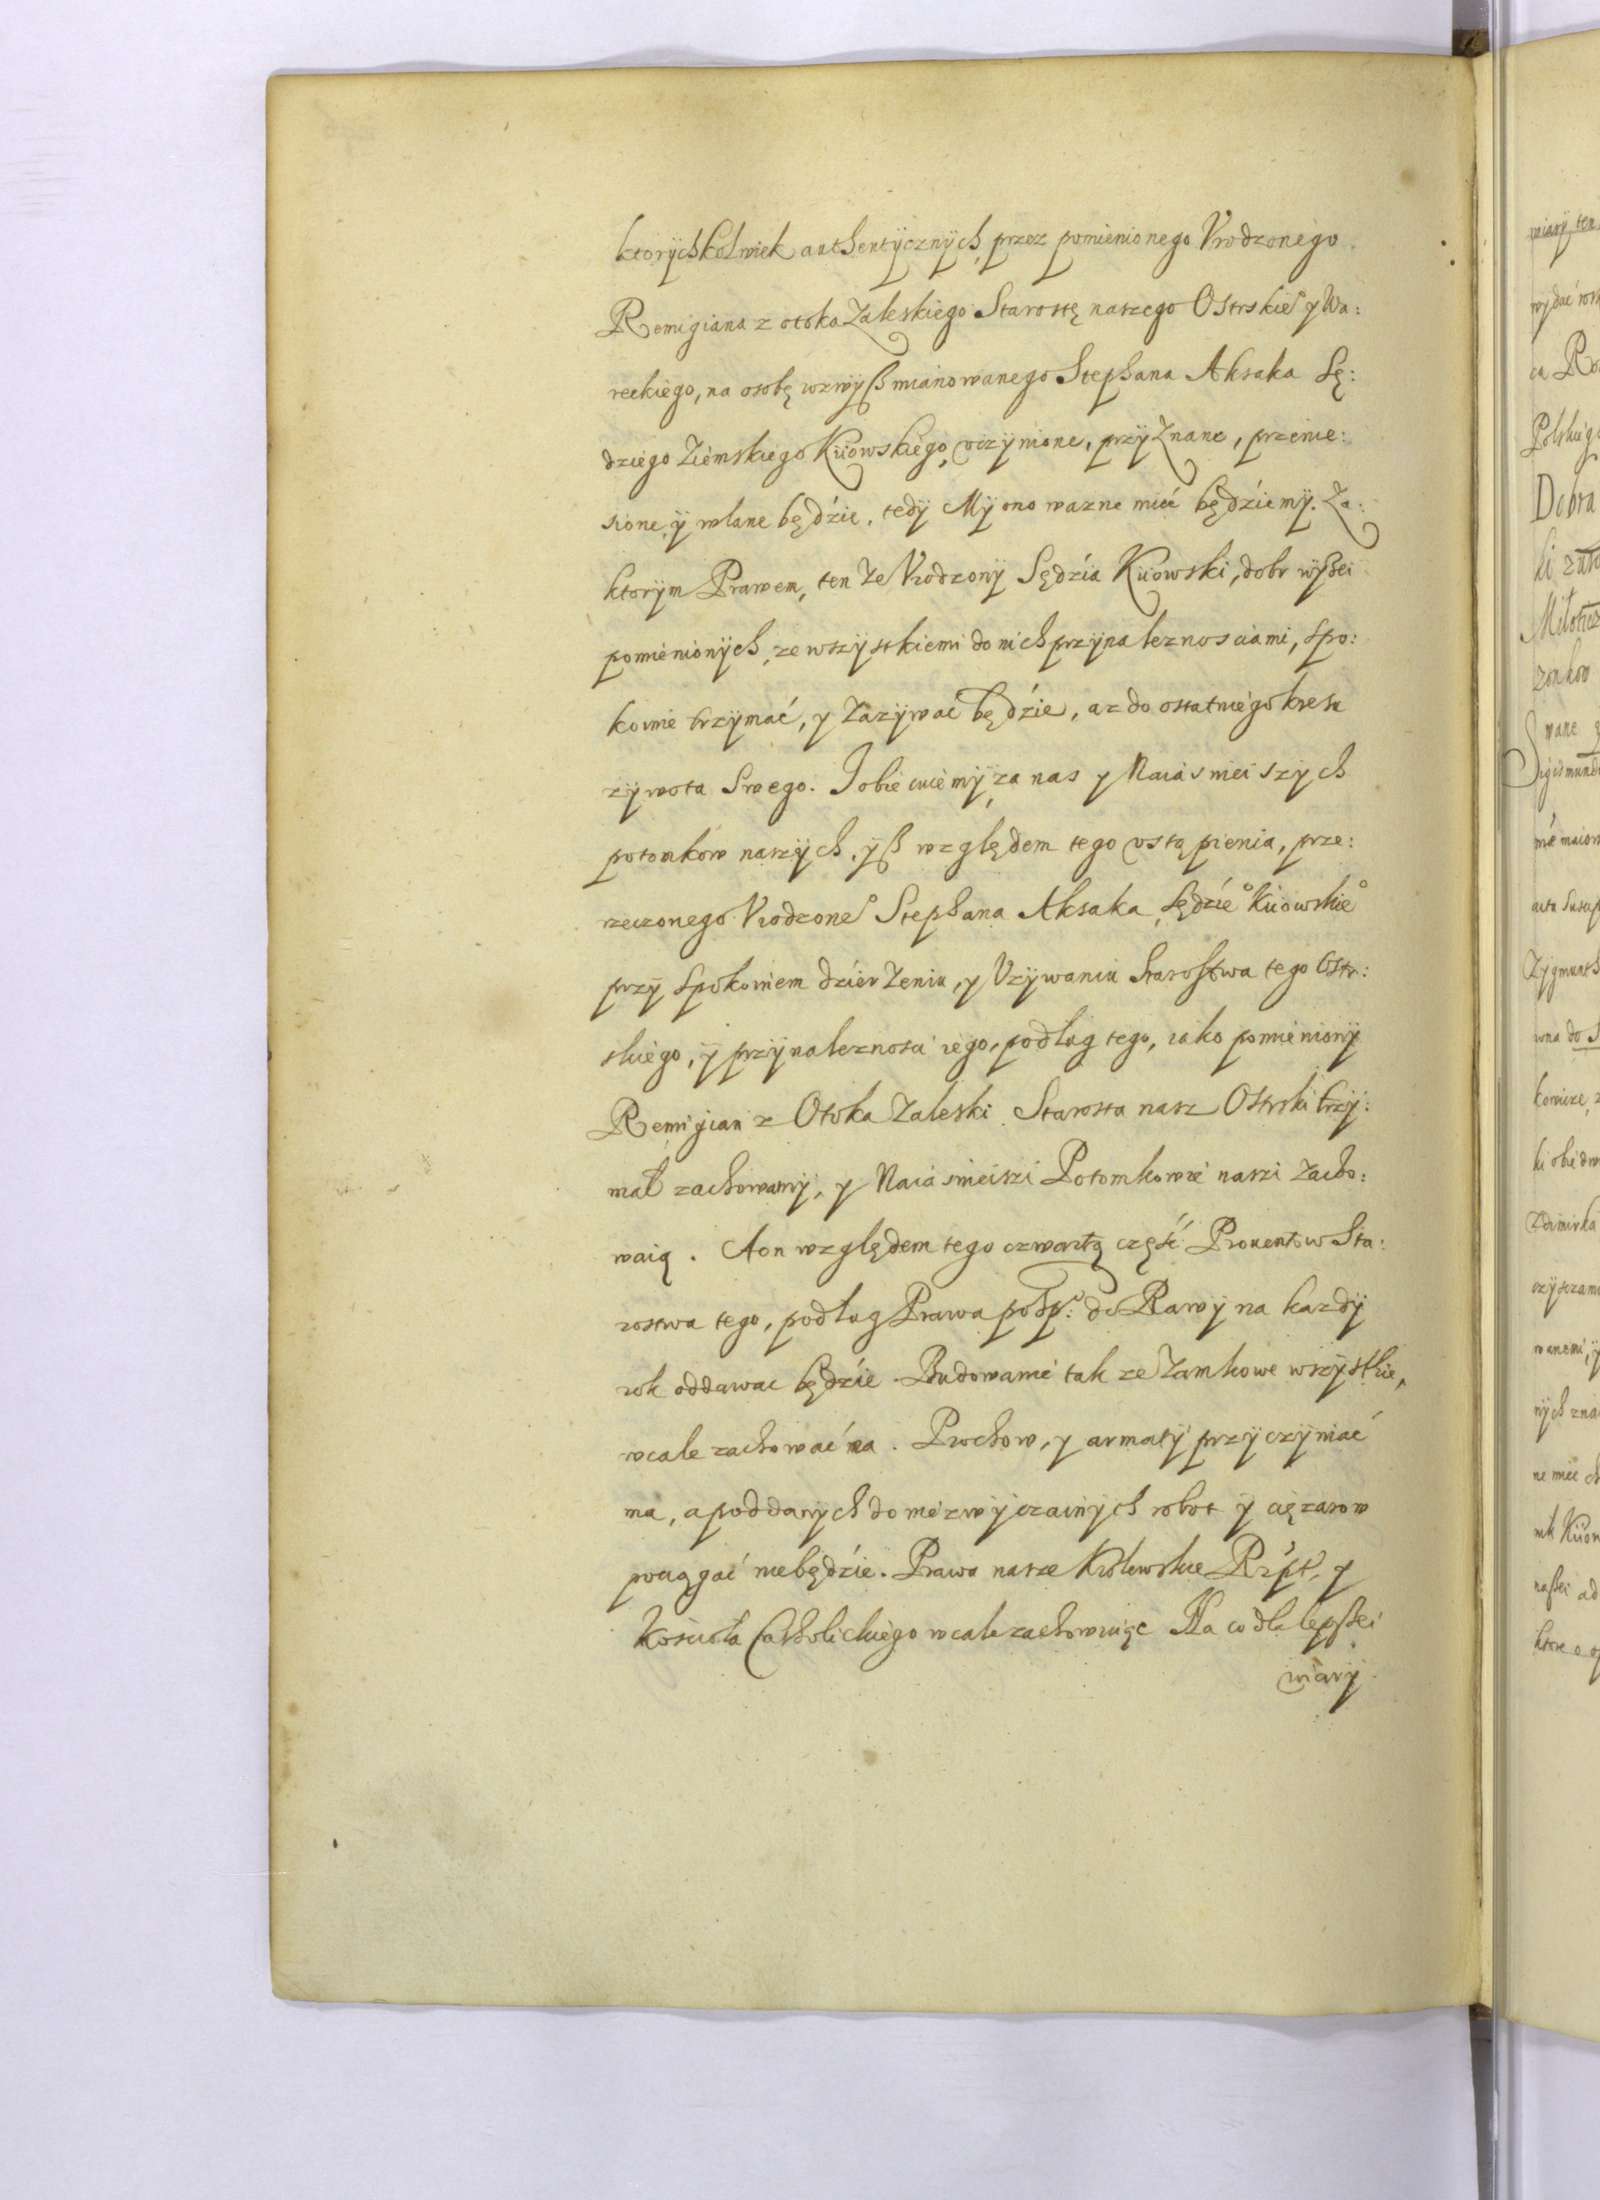 ktorychkolwiek authentycznych, przez pomienionego Vrodzonego
Remigiana z otoka Zaleskiego Starostę naszego Ostrskie° y Wa:
reckiego, na osobę wzwyß mianowanego Stephana Aksaka Sę:
dziego Ziemskiego Kiiowskiego, vczynione, przyznane, przenie:
sione, y wlane będzie, tedy My ono wazne mieć będziemy. Za
ktorym Prawem, ten ze Vrodzony Sędzia Kiiowski, dobr wyßei
pomienionych, ze wszystkiemi do nich przynaleznosciami, spo:
koinie trzymać, y zazywac będzie, az do ostatniego kresu
zywota swego. Iobiecuiemy, za nas y Naiasnieiszych
potomków naszych, yß względem tego vstąpienia, prze:
rzeczonego Vrodzone° Stephana Aksaka, Sędzie° Kiiowskie°
przy spokoinem dzierzeniu, y Vzywaniu Starostwa tego Ostr:
skiego, y przynaleznosci iego, podług tego, iako pomieniony
Remigian z Otoka Zaleski Starosta nasz Ostrski trzy:
mał zachowamy, y Naiasnieiszi Potomkowie naszi zacho:
waią. A on względem tego czwartą część Prouentow Sta:
rostwa tego, podług Prawa posp: do Rawy na kazdy
rok oddawac będzie. Budowanie tak ze Zamkowe wszystkie,
wcale zachować ma. Prochow, y armaty przyczyniać
ma, a poddanych do niezwyczainych robot y cięzarow
pociągać niebędzie. Prawa nasze Krolewskie Rzpt, y
Kosciola Catholickiego wcale zachowuiąc Na co dla lepßei
wiary